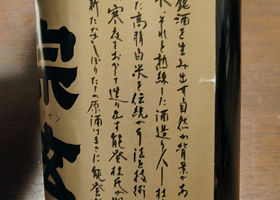 銘酒を生み出す自然の背景があ
水、それと熟練した酒造りの人 杜
た高精白米を伝統の手法と技術
寒夜をおして造り出す能登杜氏が
新たなさしぼりたての原酒はまさに能登
宗玄